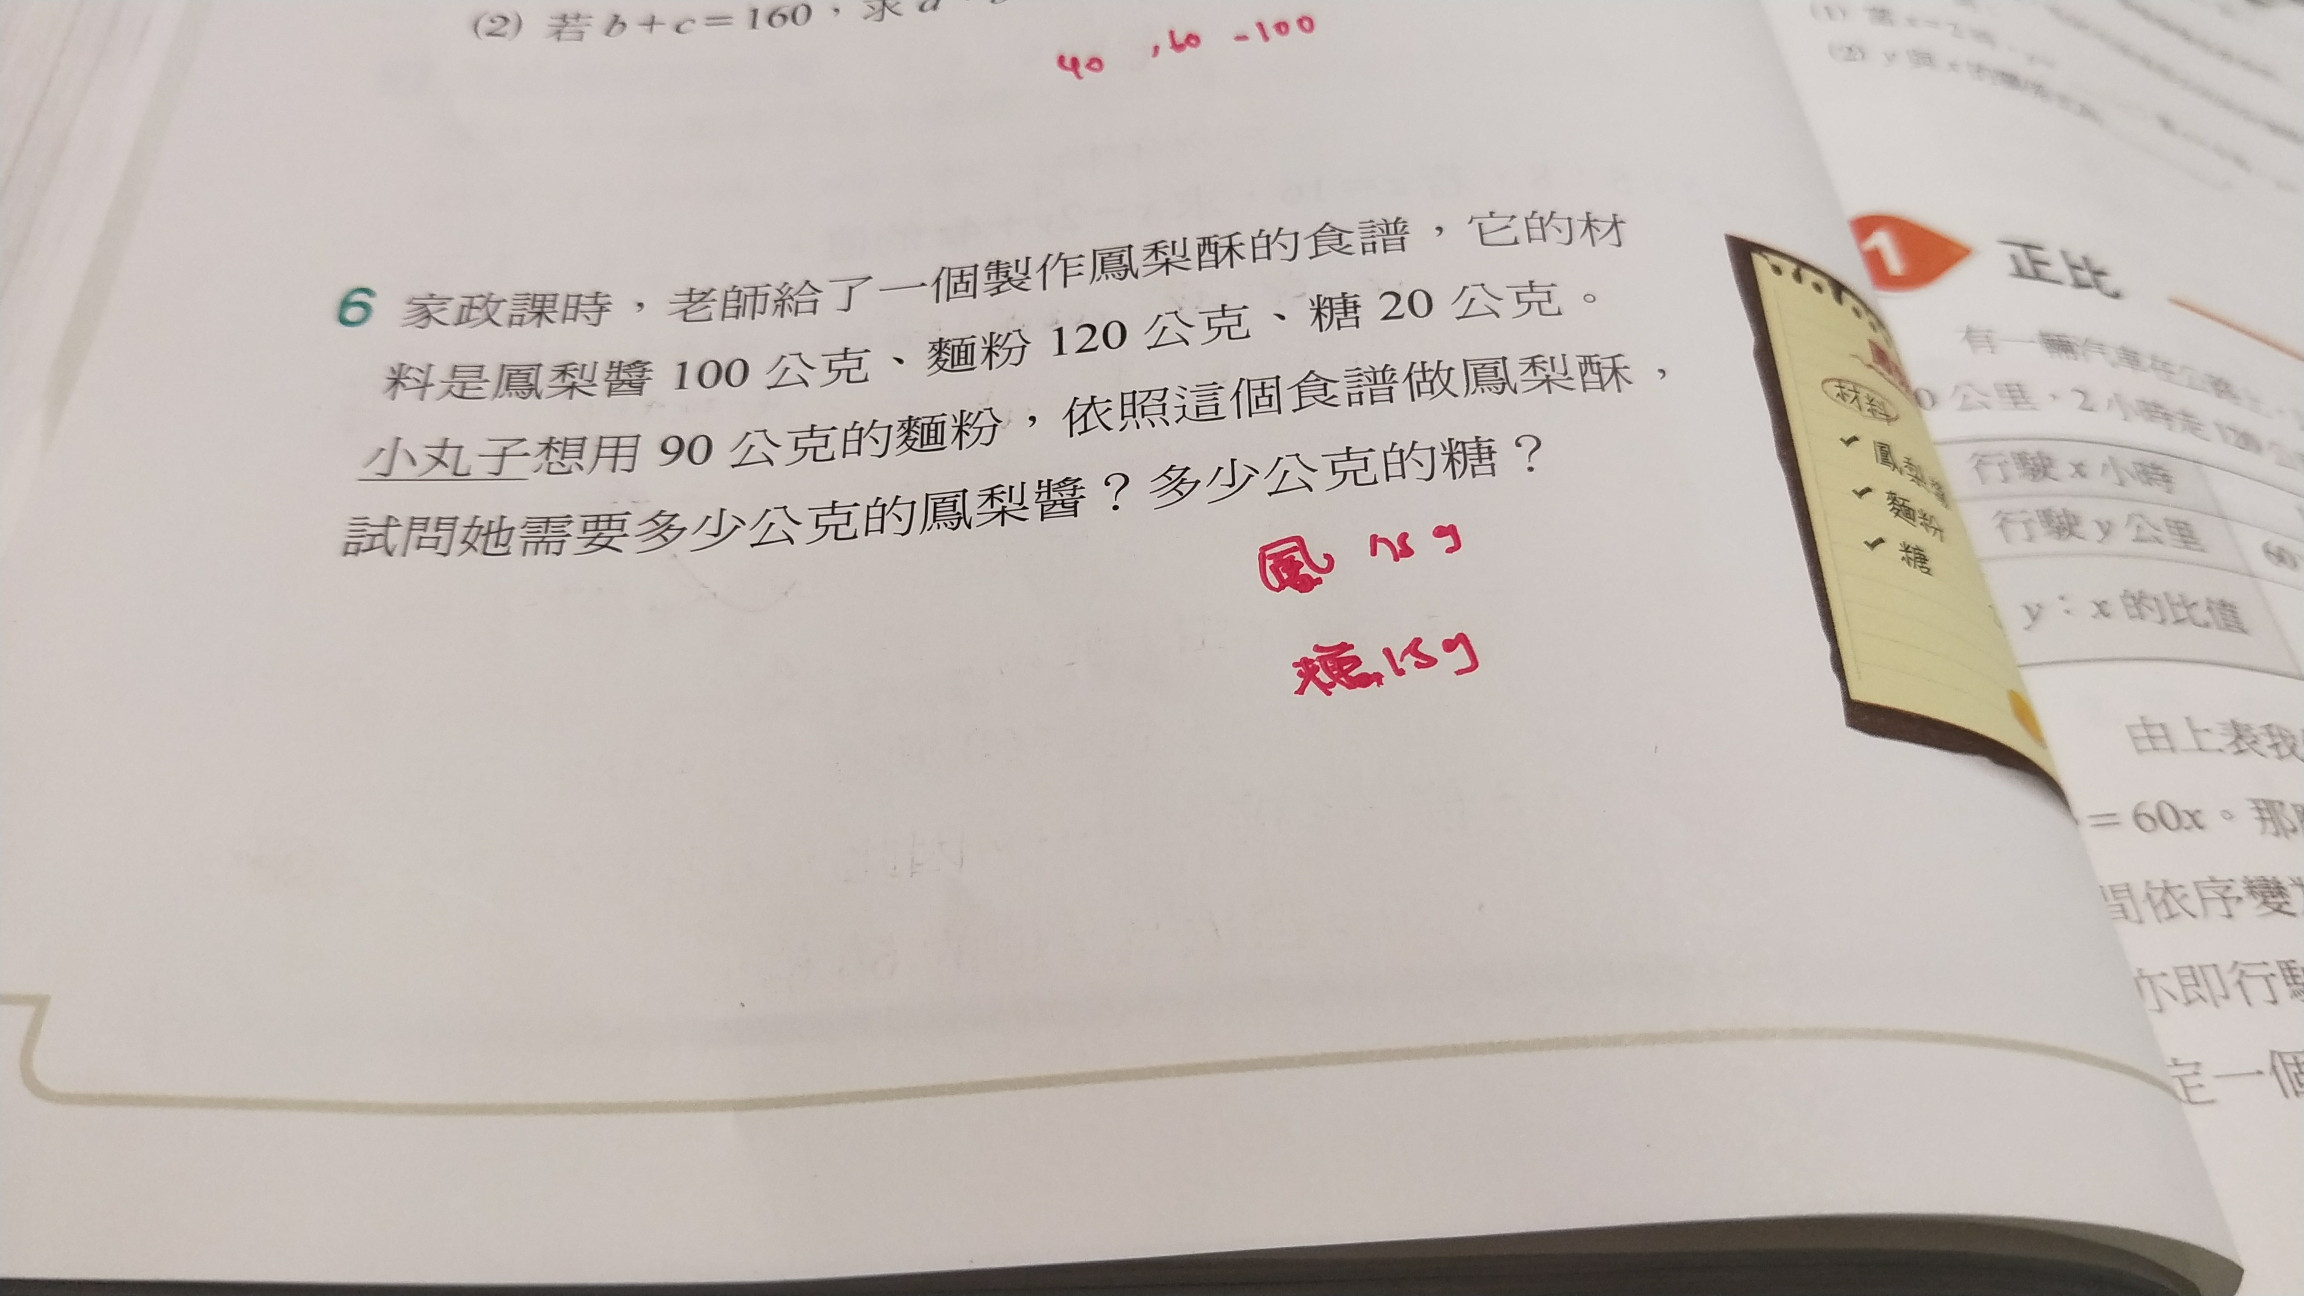 (2) 若 b+c=160，求 a
40 , 60 - 100
6 家政課時，老師給了一個製作鳳梨酥的食譜，它的材
料是鳳梨醬 100 公克、麵粉 120 公克、糖 20 公克。
小丸子想用 90 公克的麵粉，依照這個食譜做鳳梨酥，
試問她需要多少公克的鳳梨醬？多少公克的糖？
鳳 75 g
糖 15 g
材料
✓ 鳳梨醬
✓ 麵粉
✓ 糖
1 正比
有一輛汽車在公路上
0 公里，2 小時走 120 公
行駛 x 小時
行駛 y 公里 60
y：x 的比值
由上表我
=60x。那
間依序變
亦即行駛
定一個